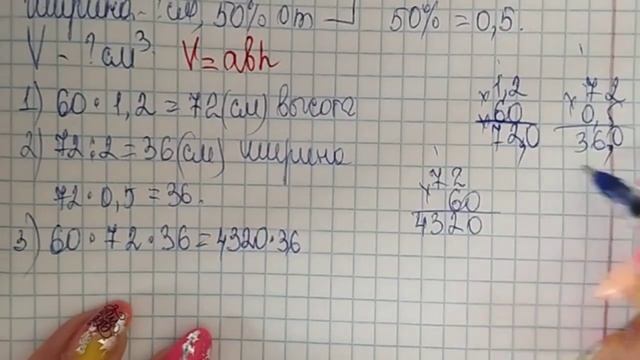 ширина - ? см, 50% от
50% = 0,5.
V - ? см³ V = abh
1) 60 · 1,2 = 72 (см) высота
2) 72 : 2 = 36 (см) ширина
72 · 0,5 = 36.
3) 60 · 72 · 36 = 4320 · 36
× 1,2
60
72,0
× 72
0,5
36,0
× 72
60
4320